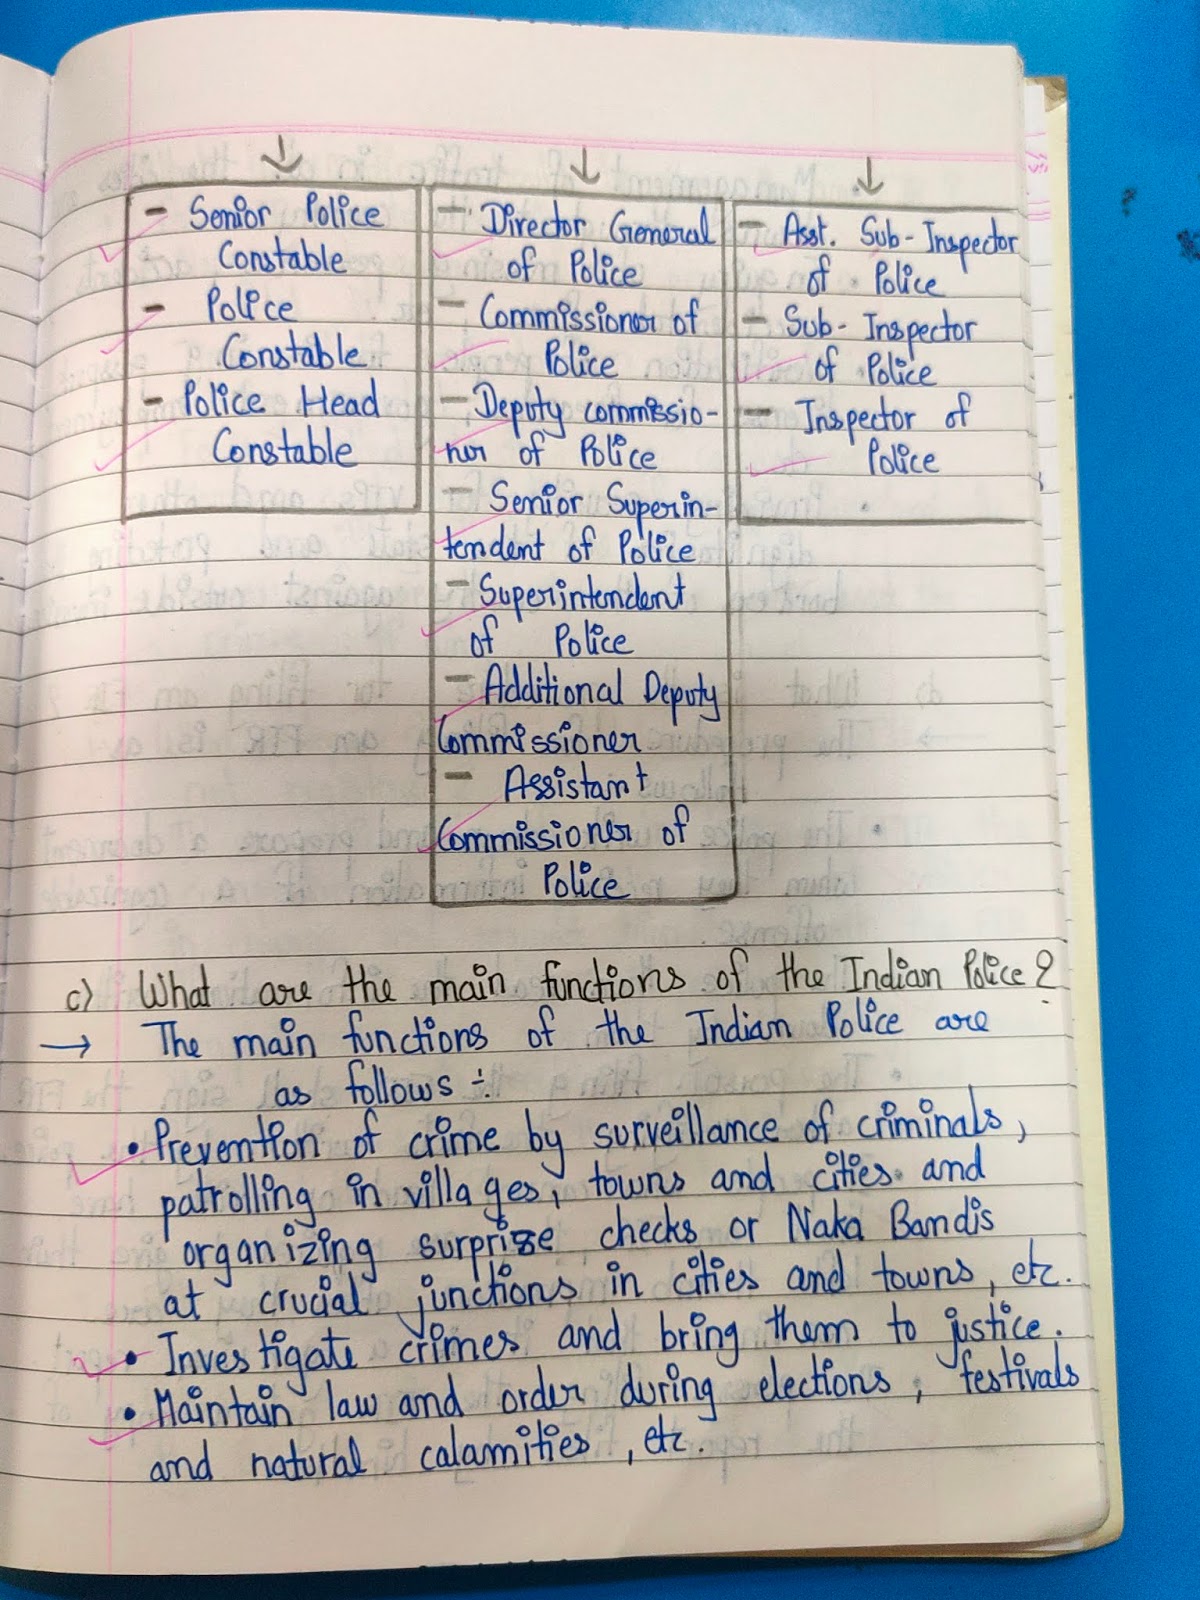 - Senior Police
Constable
- Police
Constable
- Police Head
Constable
- Director General
of Police
- Commissioner of
Police
- Deputy commissio-
ner of Police
- Senior Superin-
tendent of Police
- Superintendent
of Police
- Additional Deputy
Commissioner
- Assistant
Commissioner of
Police
- Asst. Sub-Inspector
of Police
- Sub-Inspector
of Police
- Inspector of
Police
c) What are the main functions of the Indian Police?
→ The main functions of the Indian Police are
as follows ÷
• Prevention of crime by surveillance of criminals,
patrolling in villages, towns and cities and
organizing surprise checks or Naka Bandis
at crucial junctions in cities and towns, etc.
• Investigate crimes and bring them to justice.
• Maintain law and order during elections, festivals
and natural calamities, etc.